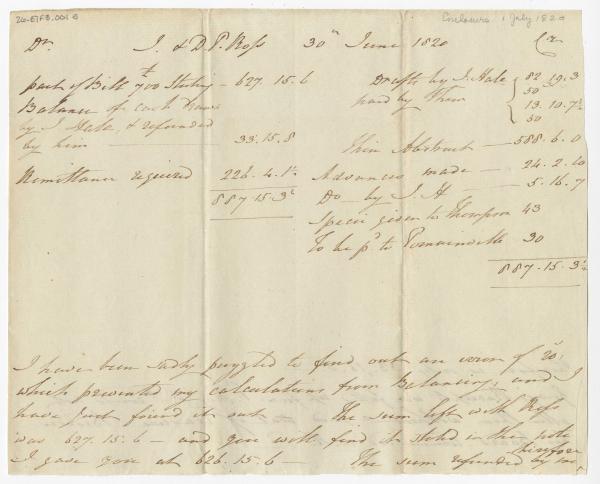 Enclosure 1 July 1820
Dr. J. & D. P. Ross 30th June 1820 Cr
part of Bill £ 700 Sterling - 627.15.6
Balance of cash drawn
by J. Hale, & refunded
by him 33.15.8
Remittance required 226.4.1½
887.15.3½
Drafts by J. Hale
paid by Them
82.19.3
50
13.10.7½
50
Their Abstract - 588.6.0
Advances made - 24.2.10
Do - by J. H - 5.16.7
Specie given to Thompson 43
To be pd. to 30
887.15.3½
I have been sadly puzzled to find out an error of 20/
which prevented my calculations from Balancing, and I
have just found it out - The sum left with Ross
was 627.15.6 - and you will find it stated in the note
I gave you at 626.15.6 - The sum refunded by me
therefore